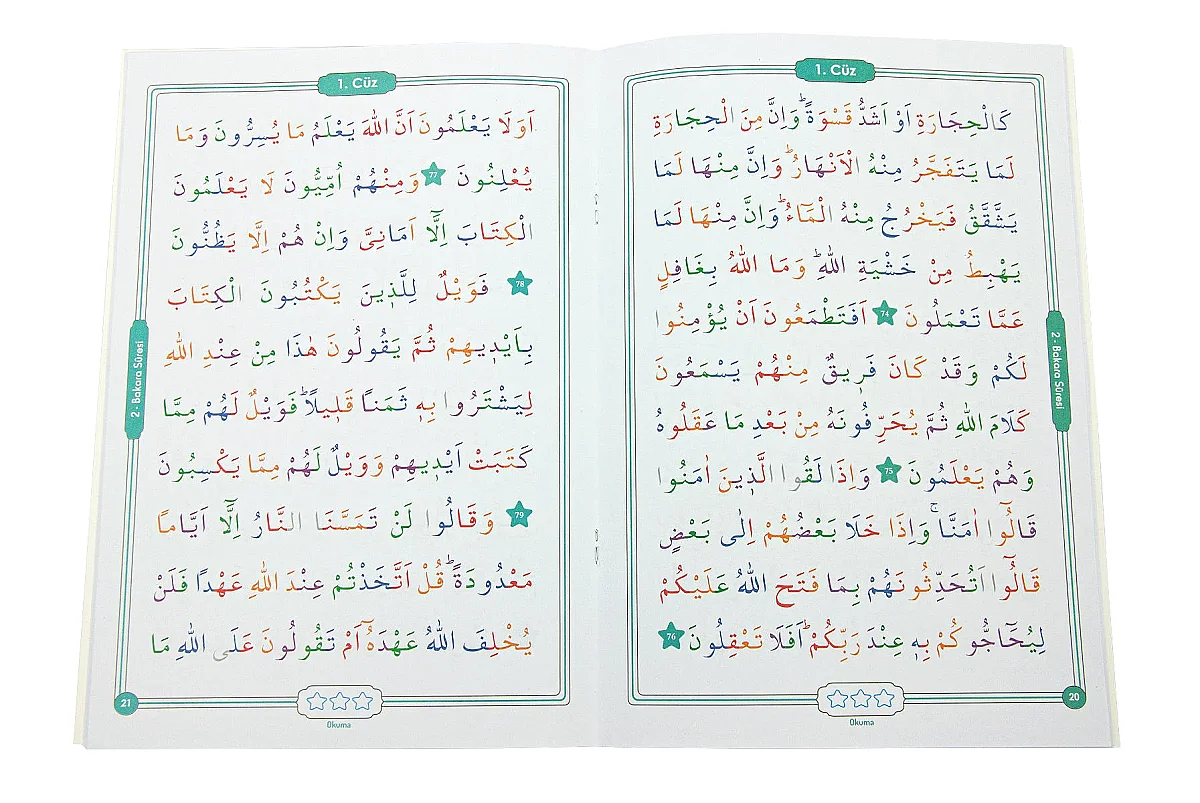 1. Cüz
كَالْحِجَارَةِ اَوْ اَشَدُّ قَسْوَةًۜ وَاِنَّ مِنَ الْحِجَارَةِ
لَمَا يَتَفَجَّرُ مِنْهُ الْاَنْهَارُۜ وَاِنَّ مِنْهَا لَمَا
يَشَّقَّقُ فَيَخْرُجُ مِنْهُ الْمَٓاءُۜ وَاِنَّ مِنْهَا لَمَا
يَهْبِطُ مِنْ خَشْيَةِ اللّٰهِۜ وَمَا اللّٰهُ بِغَافِلٍ
عَمَّا تَعْمَلُونَ 74 اَفَتَطْمَعُونَ اَنْ يُؤْمِنُوا
لَكُمْ وَقَدْ كَانَ فَرٖيقٌ مِنْهُمْ يَسْمَعُونَ
كَلَامَ اللّٰهِ ثُمَّ يُحَرِّفُونَهُ مِنْ بَعْدِ مَا عَقَلُوهُ
وَهُمْ يَعْلَمُونَ 75 وَاِذَا لَقُوا الَّذٖينَ اٰمَنُوا
قَالُٓوا اٰمَنَّاۚ وَاِذَا خَلَا بَعْضُهُمْ اِلٰى بَعْضٍ
قَالُٓوا اَتُحَدِّثُونَهُمْ بِمَا فَتَحَ اللّٰهُ عَلَيْكُمْ
لِيُحَٓاجُّوكُمْ بِهٖ عِنْدَ رَبِّكُمْۜ اَفَلَا تَعْقِلُونَ 76
2 - Bakara Sûresi
20
Okuma
1. Cüz
اَوَلَا يَعْلَمُونَ اَنَّ اللّٰهَ يَعْلَمُ مَا يُسِرُّونَ وَمَا
يُعْلِنُونَ 77 وَمِنْهُمْ اُمِّيُّونَ لَا يَعْلَمُونَ
الْكِتَابَ اِلَّٓا اَمَانِىَّ وَاِنْ هُمْ اِلَّا يَظُنُّونَ
78 فَوَيْلٌ لِلَّذٖينَ يَكْتُبُونَ الْكِتَابَ
بِاَيْدٖيهِمْ ثُمَّ يَقُولُونَ هٰذَا مِنْ عِنْدِ اللّٰهِ
لِيَشْتَرُوا بِهٖ ثَمَنًا قَلٖيلًاۜ فَوَيْلٌ لَهُمْ مِمَّا
كَتَبَتْ اَيْدٖيهِمْ وَوَيْلٌ لَهُمْ مِمَّا يَكْسِبُونَ
79 وَقَالُوا لَنْ تَمَسَّنَا النَّارُ اِلَّٓا اَيَّامًا
مَعْدُودَةًۜ قُلْ اَتَّخَذْتُمْ عِنْدَ اللّٰهِ عَهْدًا فَلَنْ
يُخْلِفَ اللّٰهُ عَهْدَهُٓ اَمْ تَقُولُونَ عَلَى اللّٰهِ مَا
2 - Bakara Sûresi
21
Okuma